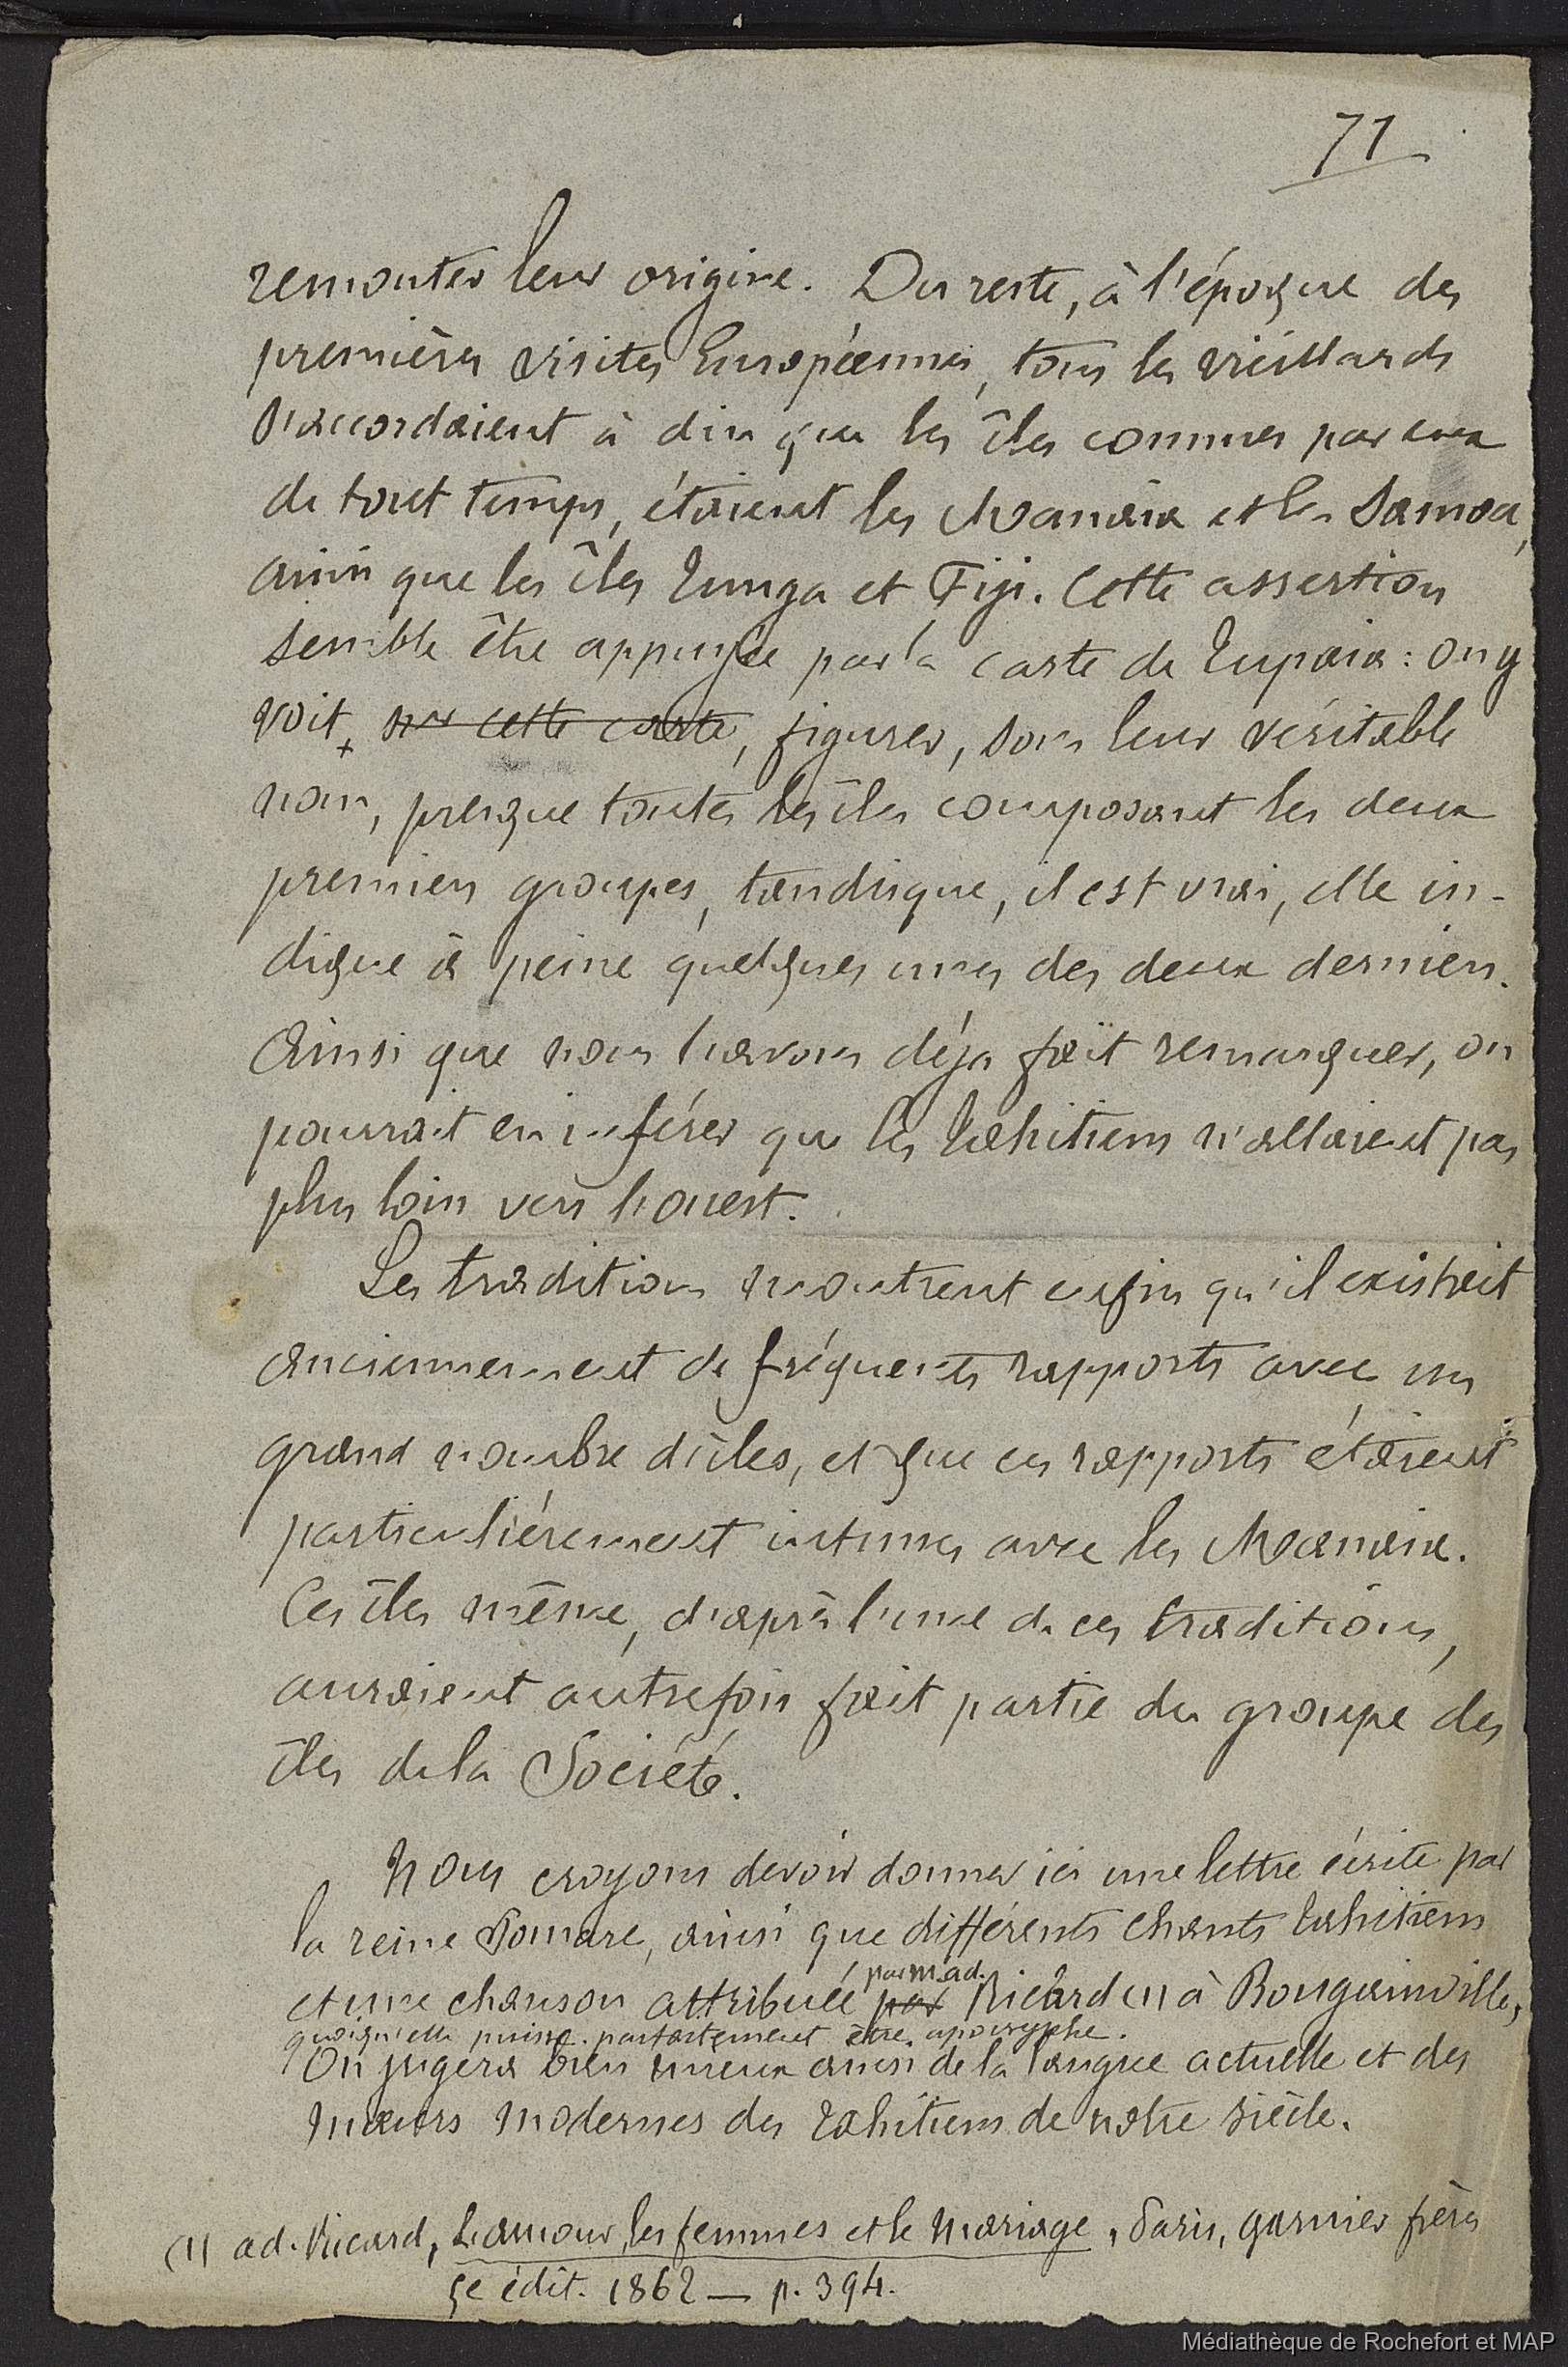 71
remonter leur origine. Du reste, à l'époque des
premières visites Européennes, tous les vieillards
s'accordaient à dire que les îles connues par eux
de tout temps, étaient les Manaia et les Samoa,
ainsi que les îles Tunga et Fiji. Cette assertion
semble être appuyée par la carte de Tupaia : on y
voit, sur cette carte, figurer, sous leur véritable
nom, presque toutes les îles composant les deux
premiers groupes, tandisque, il est vrai, elle in-
dique à peine quelques unes des deux derniers.
Ainsi que nous l'avons déja fait remarquer, on
pourrait en inférer que les Tahitiens n'allaient pas
plus loin vers l'ouest.
Les traditions montrent enfin qu'il existait
anciennement de fréquents rapports avec un
grand nombre d'îles, et que ces rapports étaient
particulièrement intimes avec les Manaia.
Ces îles même, d'après l'une de ces traditions,
auraient autrefois fait partie du groupe des
îles de la Société.
Nous croyons devoir donner ici une lettre écrite par
la reine Pomare, ainsi que différents chants tahitiens
par m. ad.
et une chanson attribuée par Ricard (1) à Bougainville,
quoiqu'elle puisse parfaitement être apocryphe.
On jugera bien mieux ainsi de la langue actuelle et des
mœurs modernes des Tahitiens de notre siècle.
(1) ad. Ricard, L'amour, les femmes et le mariage, Paris, garnier frères
5e édit. 1862 — p. 394.
Médiathèque de Rochefort et MAP